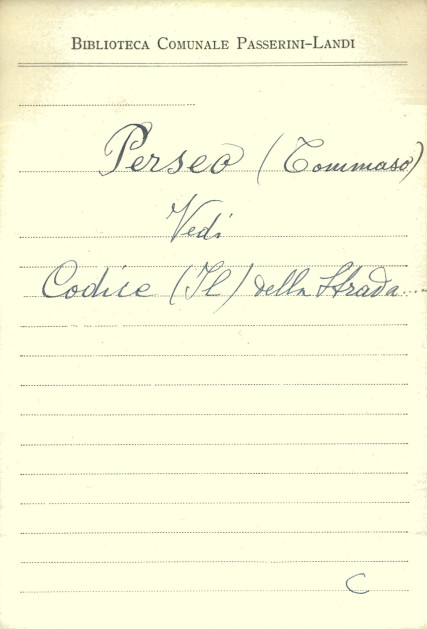 BIBLIOTECA COMUNALE PASSERINI-LANDI
Perseo (Tommaso)
Vedi
Codice (Il) della Strada...
C